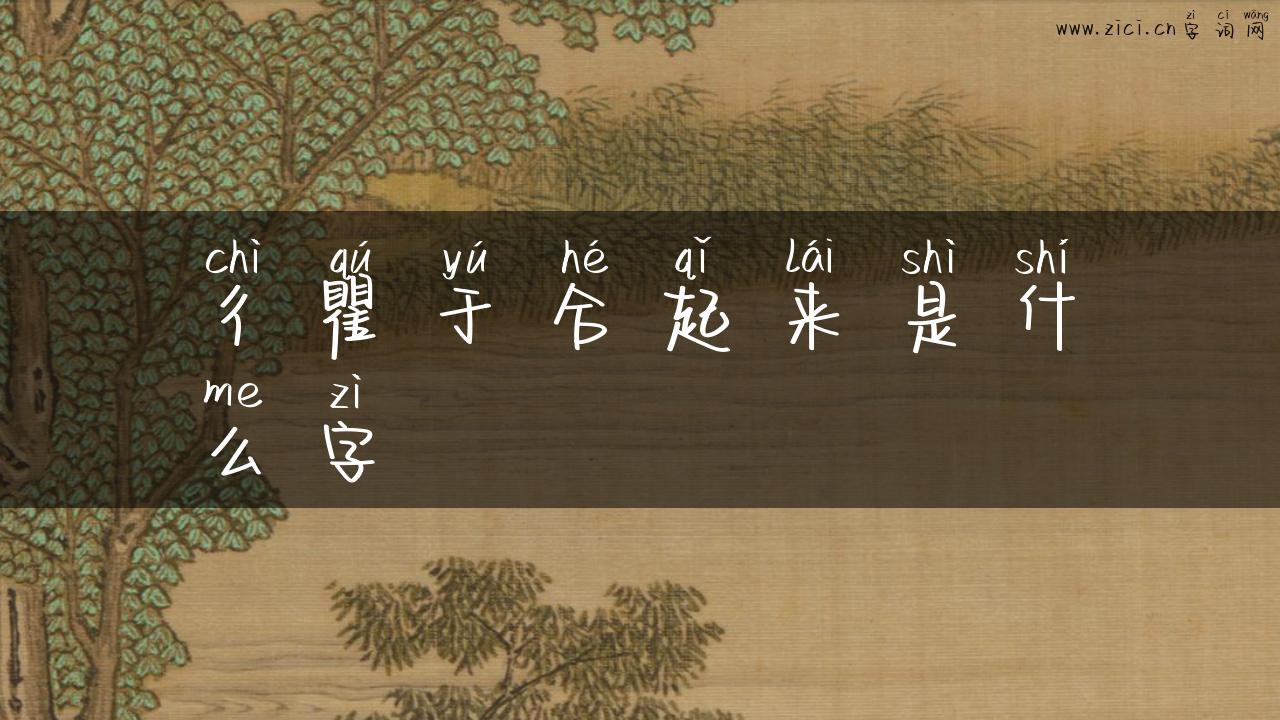 zì cí wǎng
www.zici.cn 字词网
chì qú yú hé qǐ lái shì shí
彳瞿于合起来是什
me zì
么字